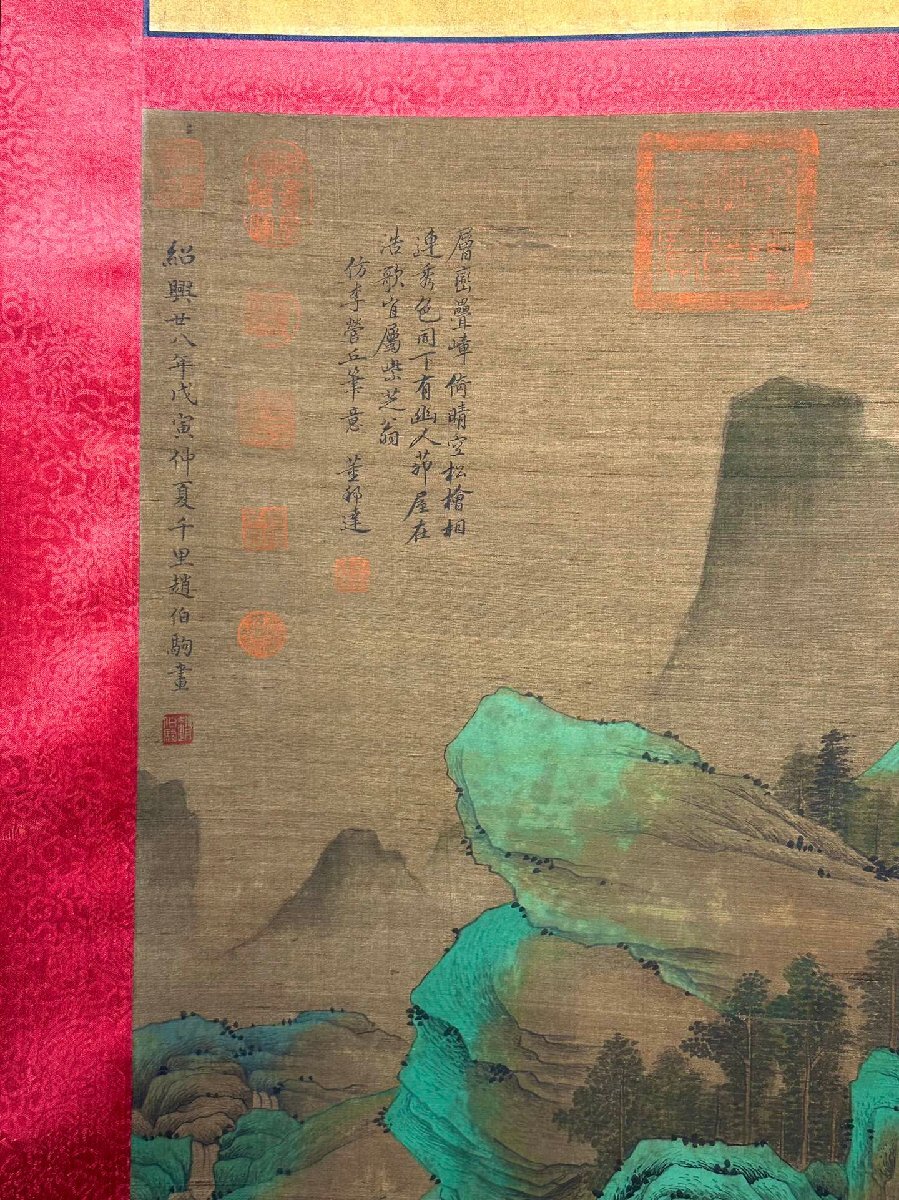 層巒疊嶂倚晴空松檜相
連秀色同下有幽人茆屋在
浩歌宜屬紫芝翁
仿李營丘筆意 董邦達
紹興廿八年戊寅仲夏千里趙伯駒畫